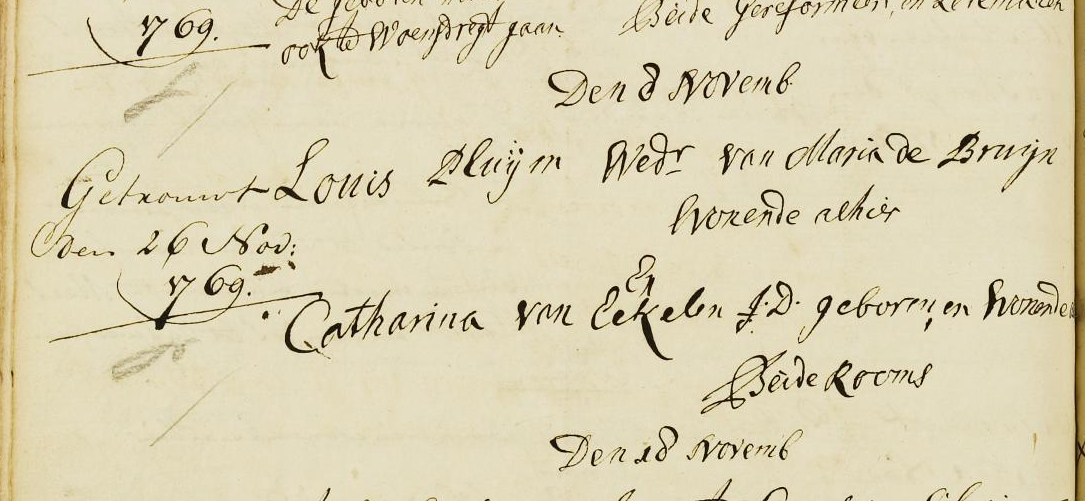 1769.
De geboren
ook te Woensdregt gaan
Beide Gereformeert, en
Den 8 Novemb
Getrouwt
den 26 Nov:
1769.
Louis Pluijm Wedr van Maria de Bruijn
Wonende alhier
En
Catharina van Eekelen J:D. geboren, en Wonende
Beide Rooms
Den 18 Novemb